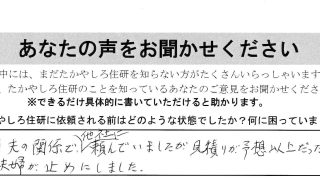 あなたの声をお聞かせください
中には、まだたかやしろ住研を知らない方がたくさんいらっしゃいます
、たかやしろ住研のことを知っているあなたのご意見をお聞かせくださ
※できるだけ具体的に書いていただけると助かります。
しろ住研に依頼される前はどのような状態でしたか？何に困っていま
夫の関係で他社に頼んでいましたが見積りが予想以上だっ
止めにしました。